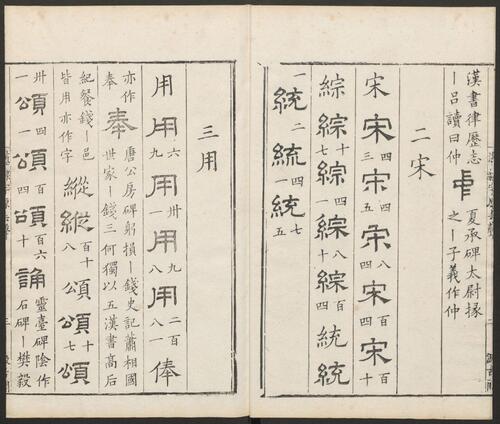 漢書律歷志
ー呂讀曰仲
夏承碑太尉掾
之ー子義作仲
二宋
宋宋四三宋四五宋八四宋百十
綜綜十七綜四一綜八十綜百四統統
一統二統四一統七五
三用
用用六九用卅一用九八用二百八一俸
亦作
奉
奉
唐公房碑躬損ー錢史記蕭相國
世家ー錢三何獨以五漢書高后
紀餐錢ー邑
皆用亦作字
縱縱百十八頌頌十七頌
卅一頌四一頌百四頌百六十誦
靈臺碑陰作
石碑ー樊毅